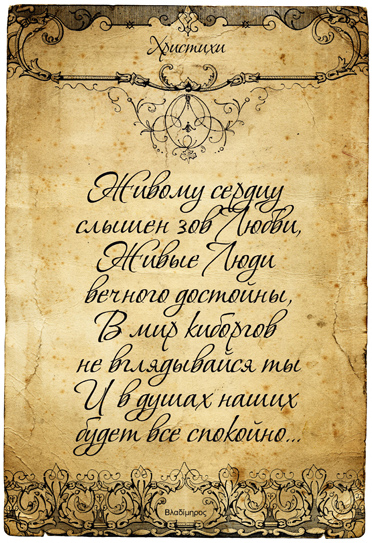 Христихи
Живому сердцу
слышен зов Любви,
Живые Люди
вечного достойны,
В мир киборгов
не вглядывайся ты
И в душах наших
будет все спокойно...
Владімнрос